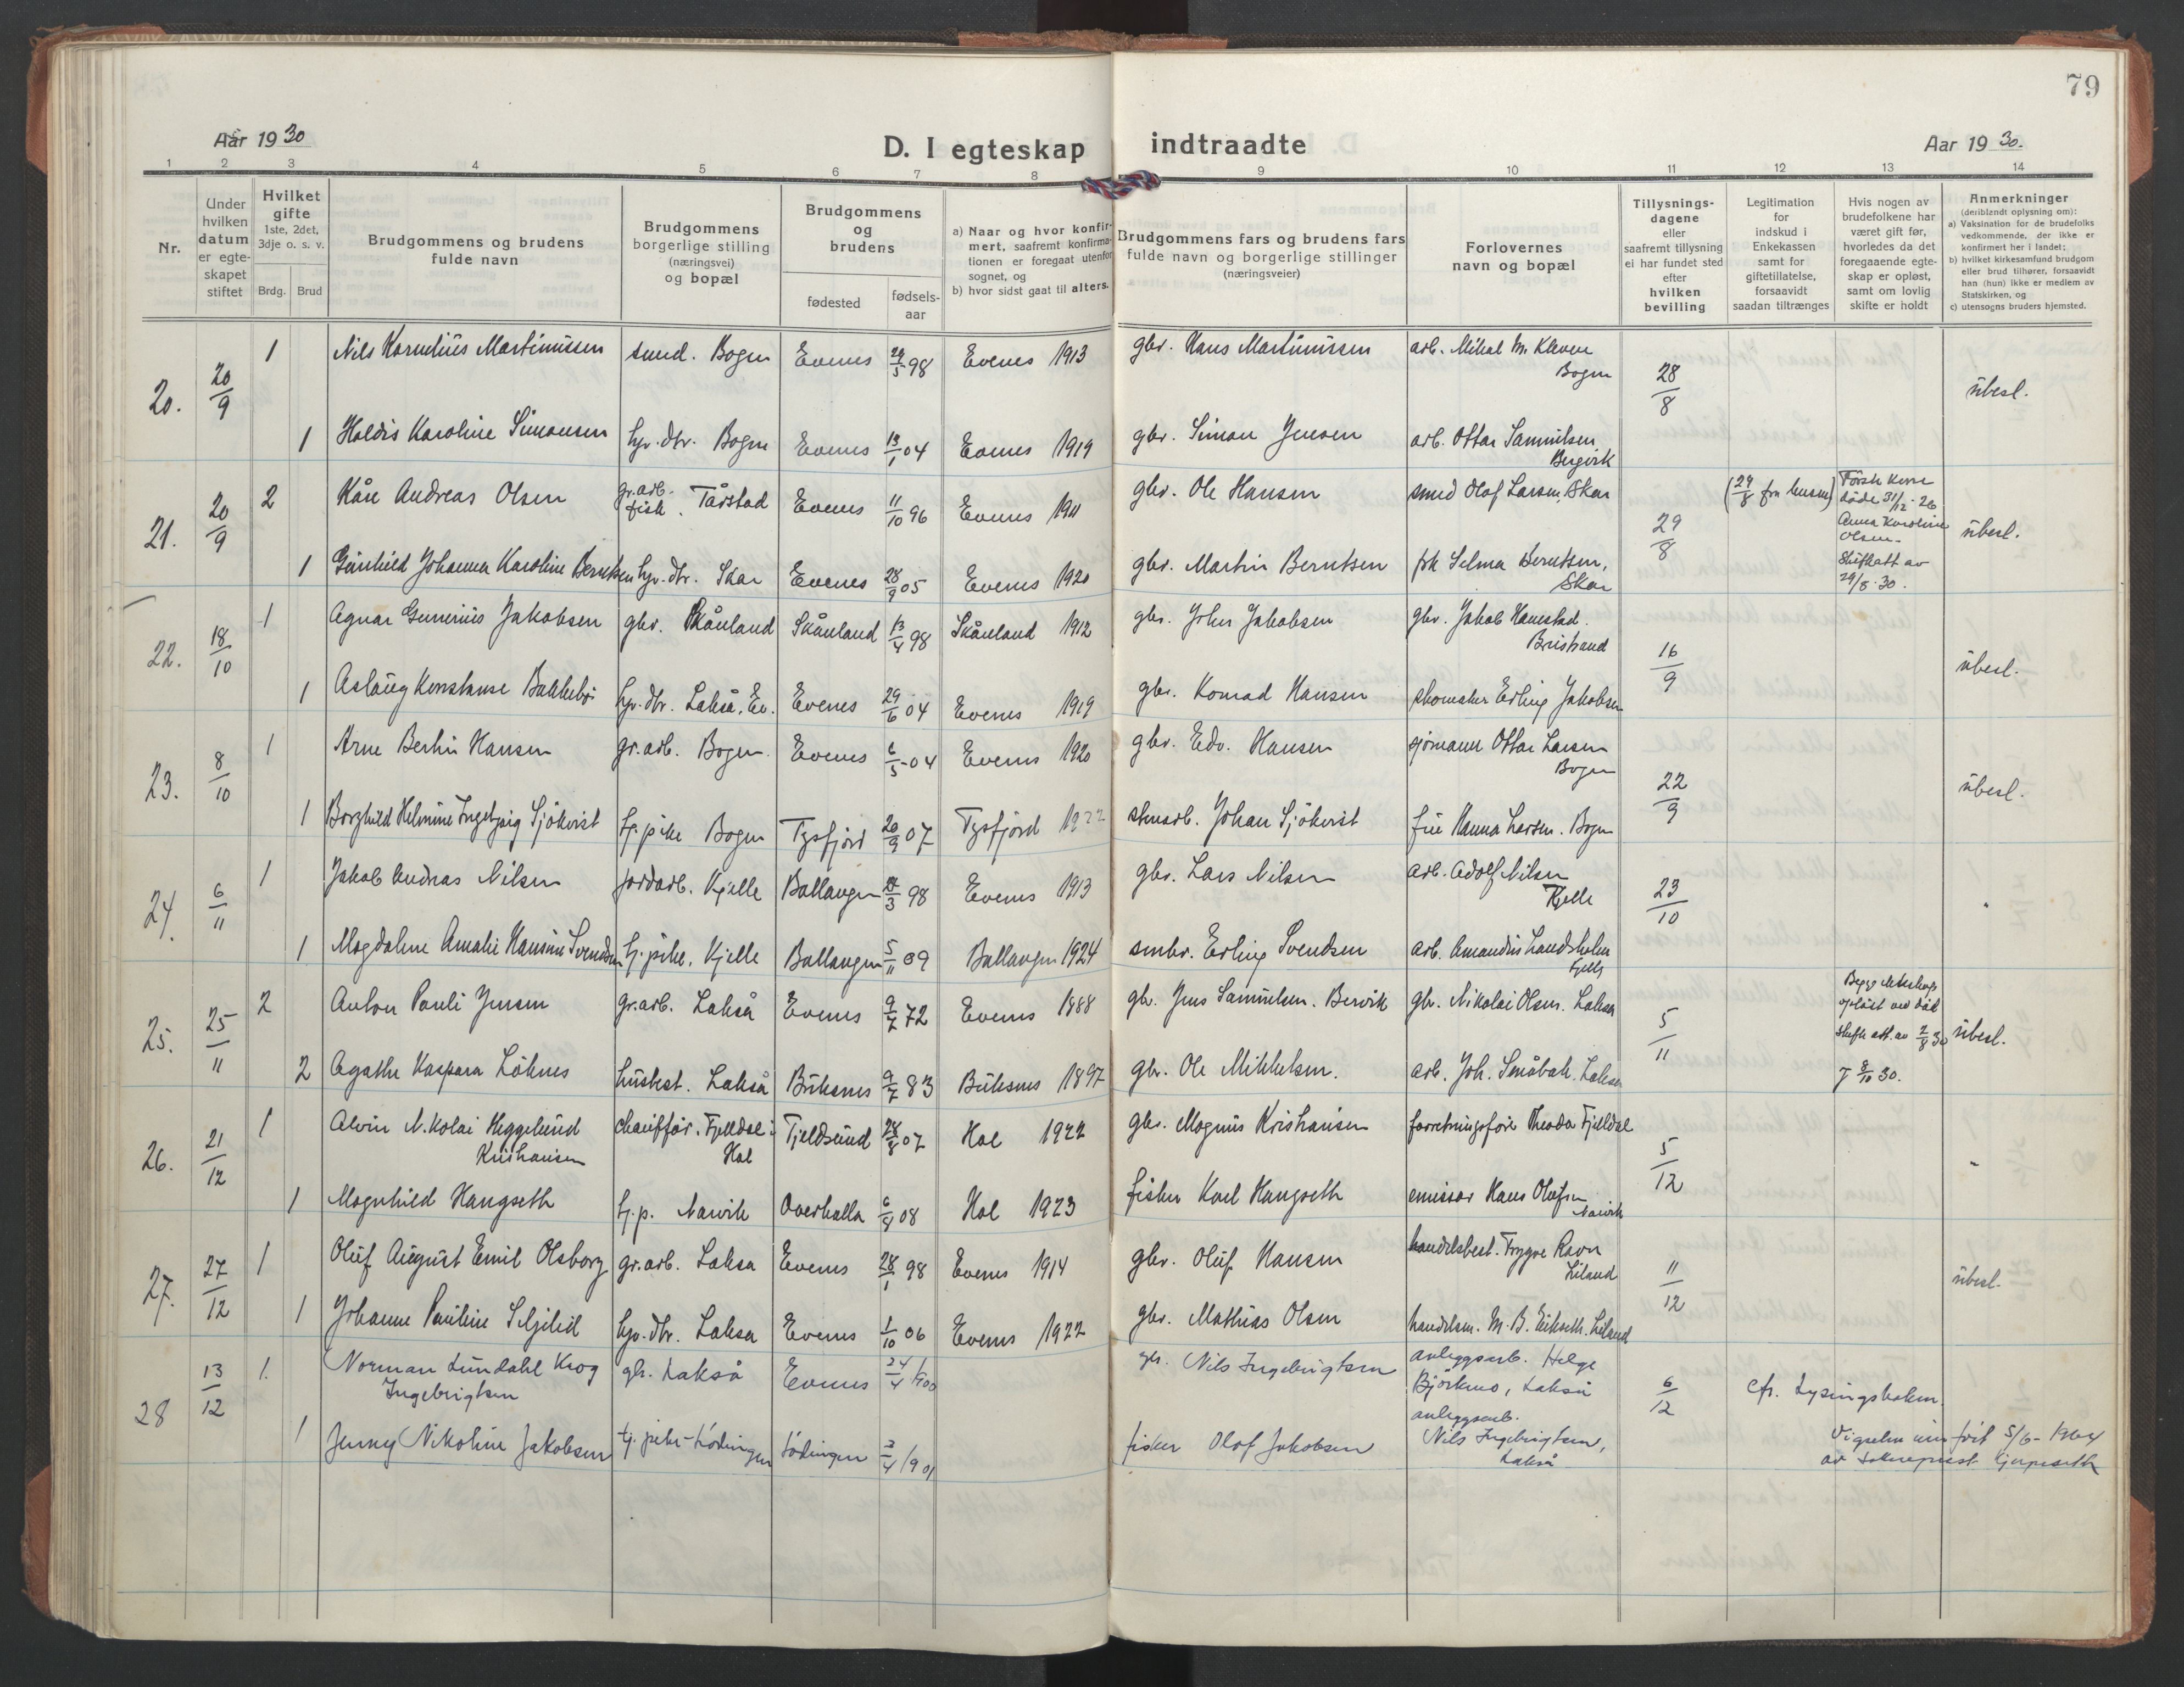 79
Aar 1930
D. I egteskap indtraadte
Aar 1930.
1 2 3 4 5 6 7 8 9 10 11 12 13 14
Nr.
Under
hvilken
datum
er egte-
skapet
stiftet
Hvilket
gifte
1ste, 2det,
3dje o. s. v.
Brdg. Brud
Brudgommens og brudens
fulde navn
Brudgommens
borgerlige stilling
(næringsvei)
og bopæl
Brudgommens
og
brudens
fødested
fødsels-
aar
a) Naar og hvor konfir-
mert, saafremt konfirma-
tionen er foregaat utenfor
sognet, og
b) hvor sidst gaat til alters.
Brudgommens fars og brudens fars
fulde navn og borgerlige stillinger
(næringsveier)
Forlovernes
navn og bopæl
Tillysnings-
dagene
eller
saafremt tillysning
ei har fundet sted
efter
hvilken
bevilling
Legitimation
for
indskud i
Enkekassen
samt for
giftetillatelse,
forsaavidt
saadan tiltrænges
Hvis nogen av
brudefolkene har
været gift før,
hvorledes da det
foregaaende egte-
skap er opløst,
samt om lovlig
skifte er holdt
Anmerkninger
(deriblandt oplysning om):
a) Vaksination for de brudefolks
vedkommende, der ikke er
konfirmert her i landet;
b) hvilket kirkesamfund brudgom
eller brud tilhører, forsaavidt
han (hun) ikke er medlem av
Statskirken, og
c) utensogns bruders hjemsted.
20. 20/9 1 Nils Kornelius Martinussen smed. Bogen Evenes 5 98 Evenes 1913 gbr. Hans Martinussen arb. Mikal M. Kleven
Bogen 28/8 ubesl.
1 Haldis Karoline Simonsen hj. dtr. Bogen Evenes 13/1 04 Evenes 1919 gbr. Simon Jensen arb. Ottar Samuelsen
Bergvik
21. 20/9 2 Kåre Andreas Olsen gr.arb.
fisk. Tårstad Evenes 11/10 96 Evenes 1911 gbr. Ole Hansen smed Olaf Larsen, Skar 29/8 (29/8 fra lensm) Første kone
døde 31/12-26
Anna Karoline
Olsen.
Skifteatt av
29/8 30. ubesl.
1 Gunhild Johanna Karoline Berntsen hj. dtr. Skar Evenes 28/9 05 Evenes 1920 gbr. Martin Berntsen frk Selma Berntsen,
Skar
22. 18/10 1 Agnar Gunerius Jakobsen gbr. Skånland Skånland 13/4 98 Skånland 1912 gbr. Johs Jakobsen gbr. Jakob Hanestad.
16/9 ubesl.
1 Aslaug Konstanse Bakkebø hj. dtr. Lakså, Ev. Evenes 29/6 04 Evenes 1919 gbr. Konrad Hansen skomaker Erling Jakobsen
23. 8/10 1 Arne Bertin Hansen gr.arb. Bogen Evenes 6/5-04 Evenes 1920 gbr. Edv. Hansen sjömann Ottar Larsen
Bogen 22/9 ubesl.
1 Borghild Helmine Ingebjørg Sjökvist tj. pike Bogen Tysfjord 20/9 07 Tysfjord 1922 stenarb. Johan Sjökvist fru Hanna Larsen. Bogen
24. 6/11 1 Jakob Andreas Nilsen jordarb. Kjelle Ballangen 3 98 Evenes 1913 gbr. Lars Nilsen arb. Adolf Nilsen
Kjelle 23/10
1 Magdalene Amalie Hansine Svendsen tj. pike. Kjelle Ballangen 5/11 09 Ballangen 1924 smbr. Erling Svendsen arb. Amandus Landsholm
Kjelle
25. 25/11 2 Anton Pauli Jensen gr.arb. Lakså Evenes 9/7 72 Evenes 1888 gbr. Jens Samuelsen. Bervik gbr. Nikolai Olsen. Lakså 5/11 Begge ekteskap
opløst ved død
Skifte att. av 2/8 30 ubesl.
2 Agathe Kaspara Löknes husbest. Lakså Buksnes 9/7 83 Buksnes 1897 gbr. Ole Mikkelsen. arb. Joh. Småbak. Lakså 8/10 30.
26. 21/12 1 Alvin Nikolai Heggelund
Kristiansen chauffør. Fjelldal i
Hol Tjeldsund 28/8 07 Hol 1922 gbr. Magnus Kristiansen forretningsfører Theodor Fjelldal 5/12
1 Magnhild Haugseth tj.p. Narvik Overhalla 6/4 08 Hol 1923 fisker Karl Haugseth emissær Hans Olufsen
Narvik
27. 27/12 1 Oluf August Emil Olsborg gr.arb. Lakså Evenes 28/1 98 Evenes 1914 gbr. Oluf Hansen handelsbest. Trygve Ravn
Liland 11/12 ubesl.
1 Johanne Pauline Seljelid hj. dtr. Lakså Evenes 1/10 06 Evenes 1922 gbr. Mathias Olsen handelsm. M. B. Eikseth. Liland
28 13/12 1. Norman Lundahl Krog
Ingebrigtsen gbr. Lakså Evenes 24/4 1900 gbr. Nils Ingebrigtsen anleggsarb. Helge
Björkmo, Lakså 6/12 cfr. Lysingsboken.
1 Jenny Nikoline Jakobsen tj. pike - Lödingen Lödingen 2/4 1901 fisker Olaf Jakobsen anleggsarb.
Nils Ingebrigtsen,
Lakså Vigselen innført 5/6-1964
av sokneprest